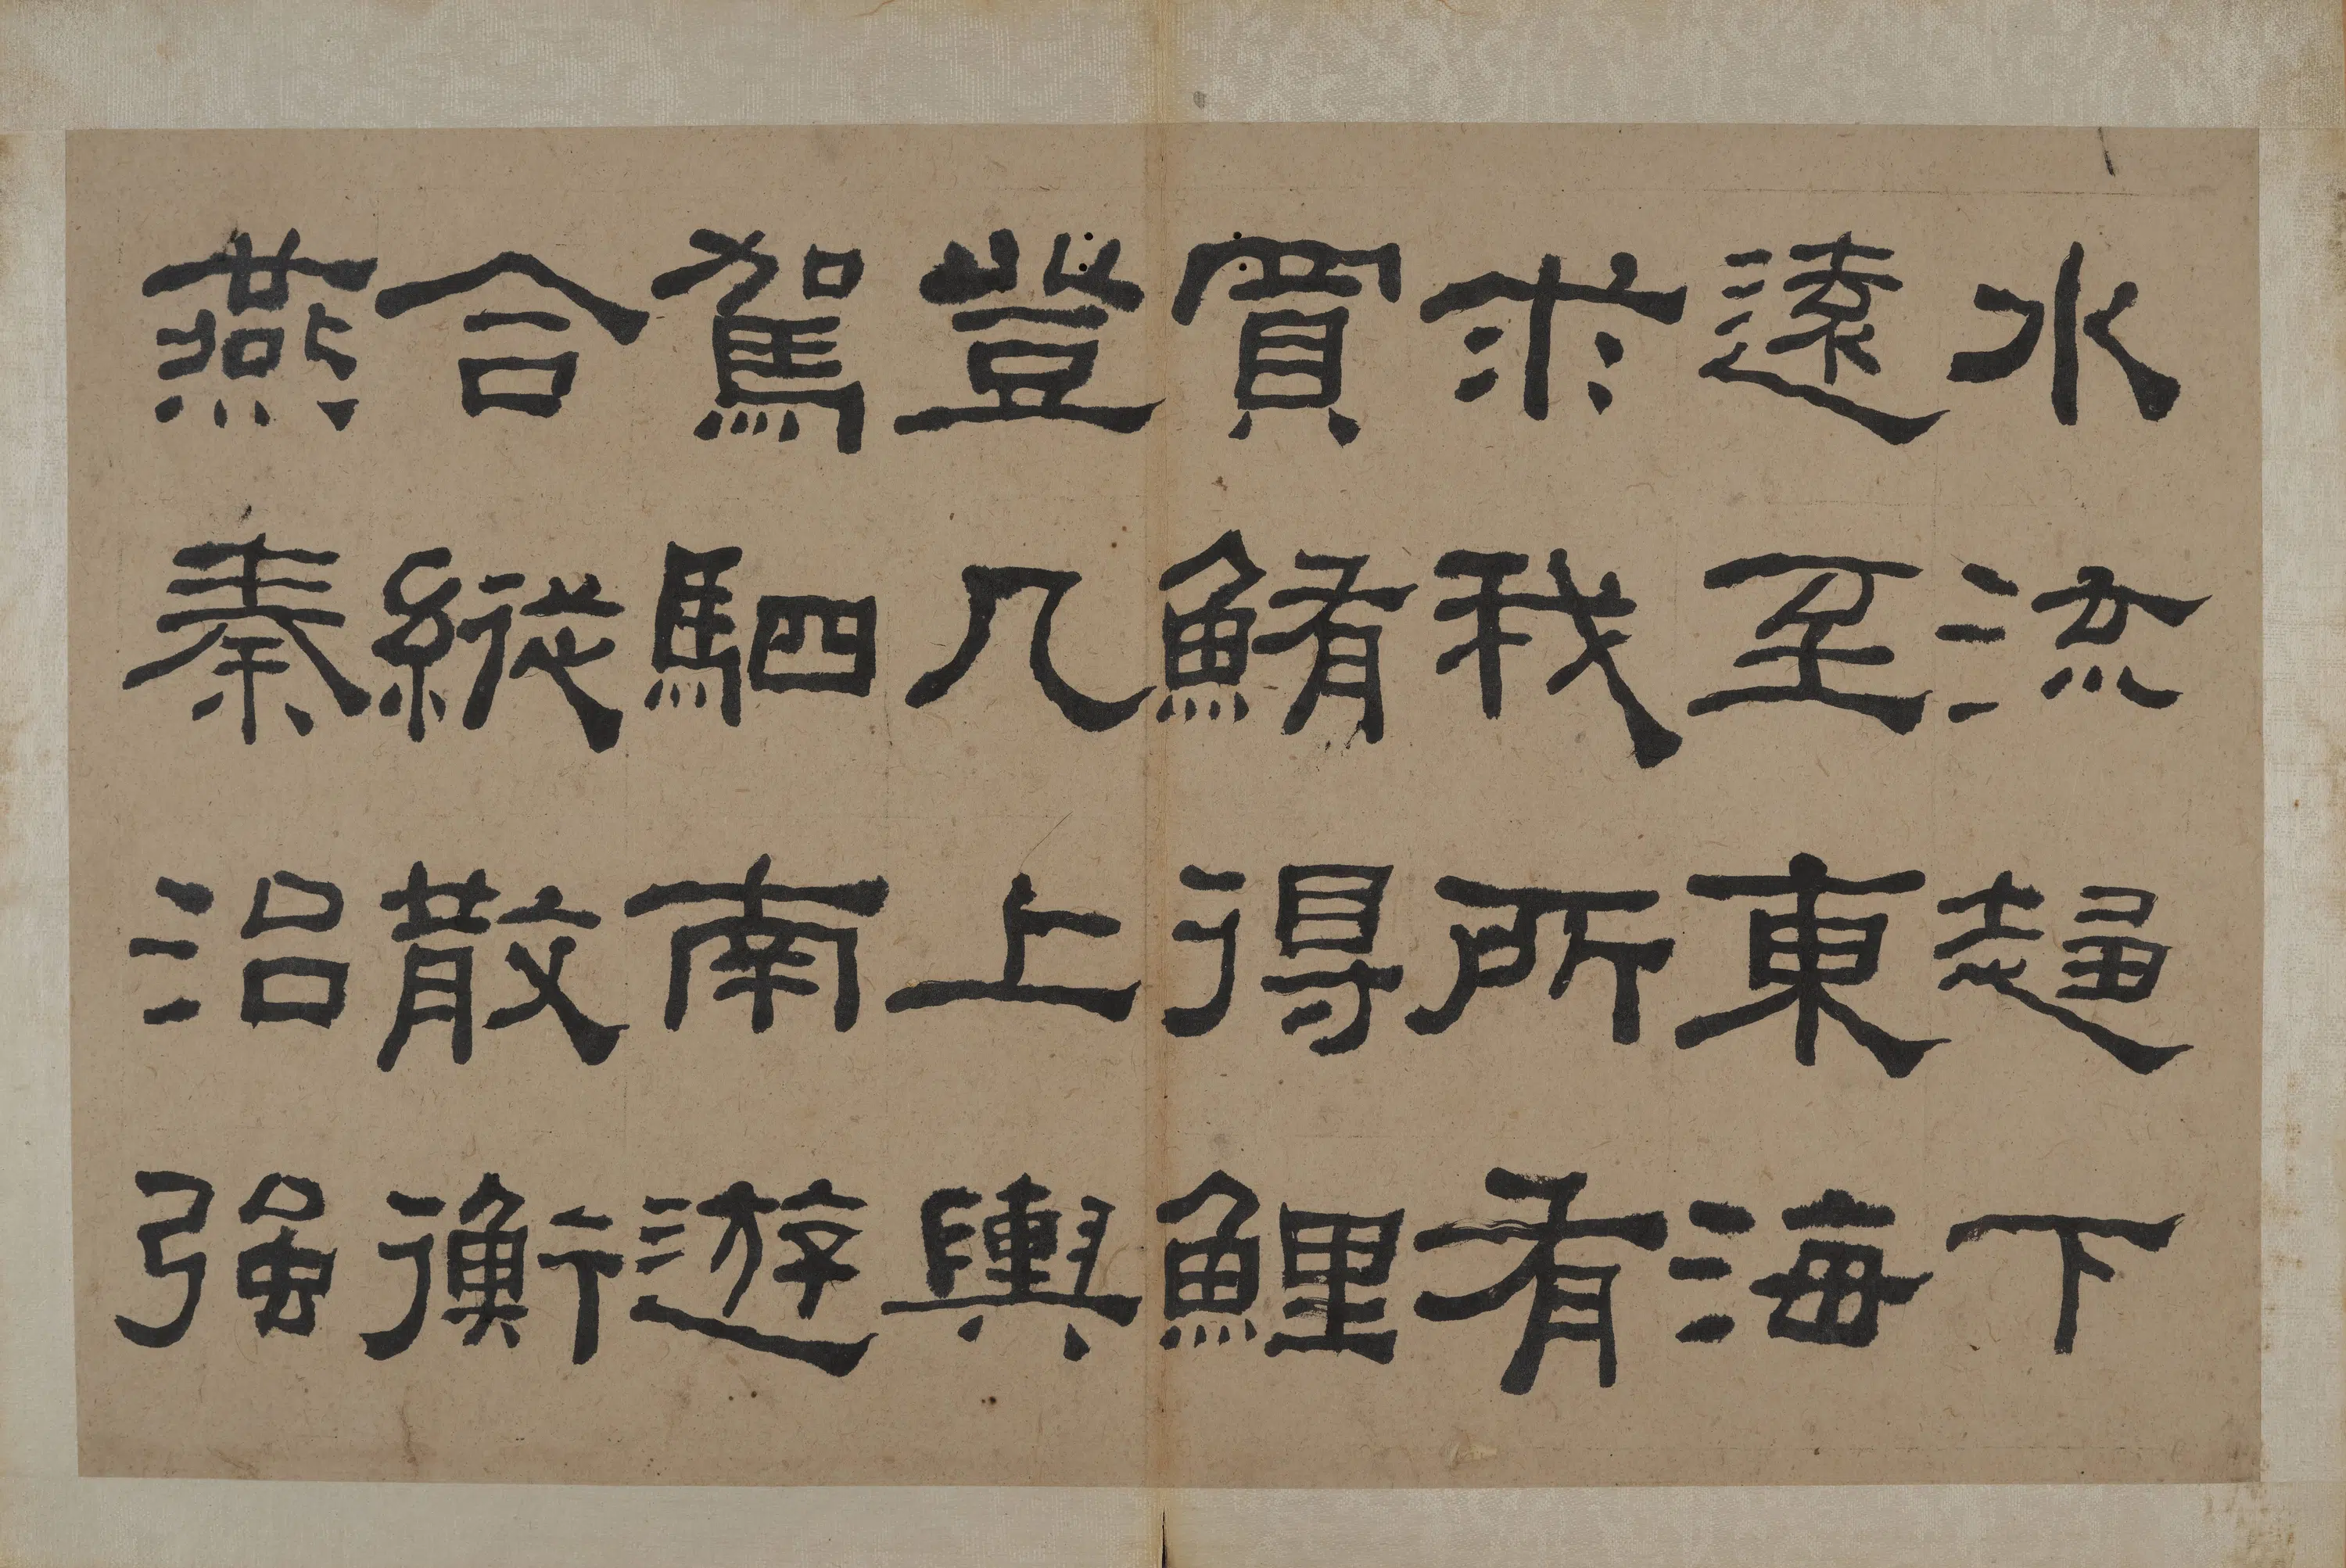 水流趨下
遠至東海
求我所有
買鮪得鯉
登几上輿
駕駟南遊
合縱散衡
燕秦治强